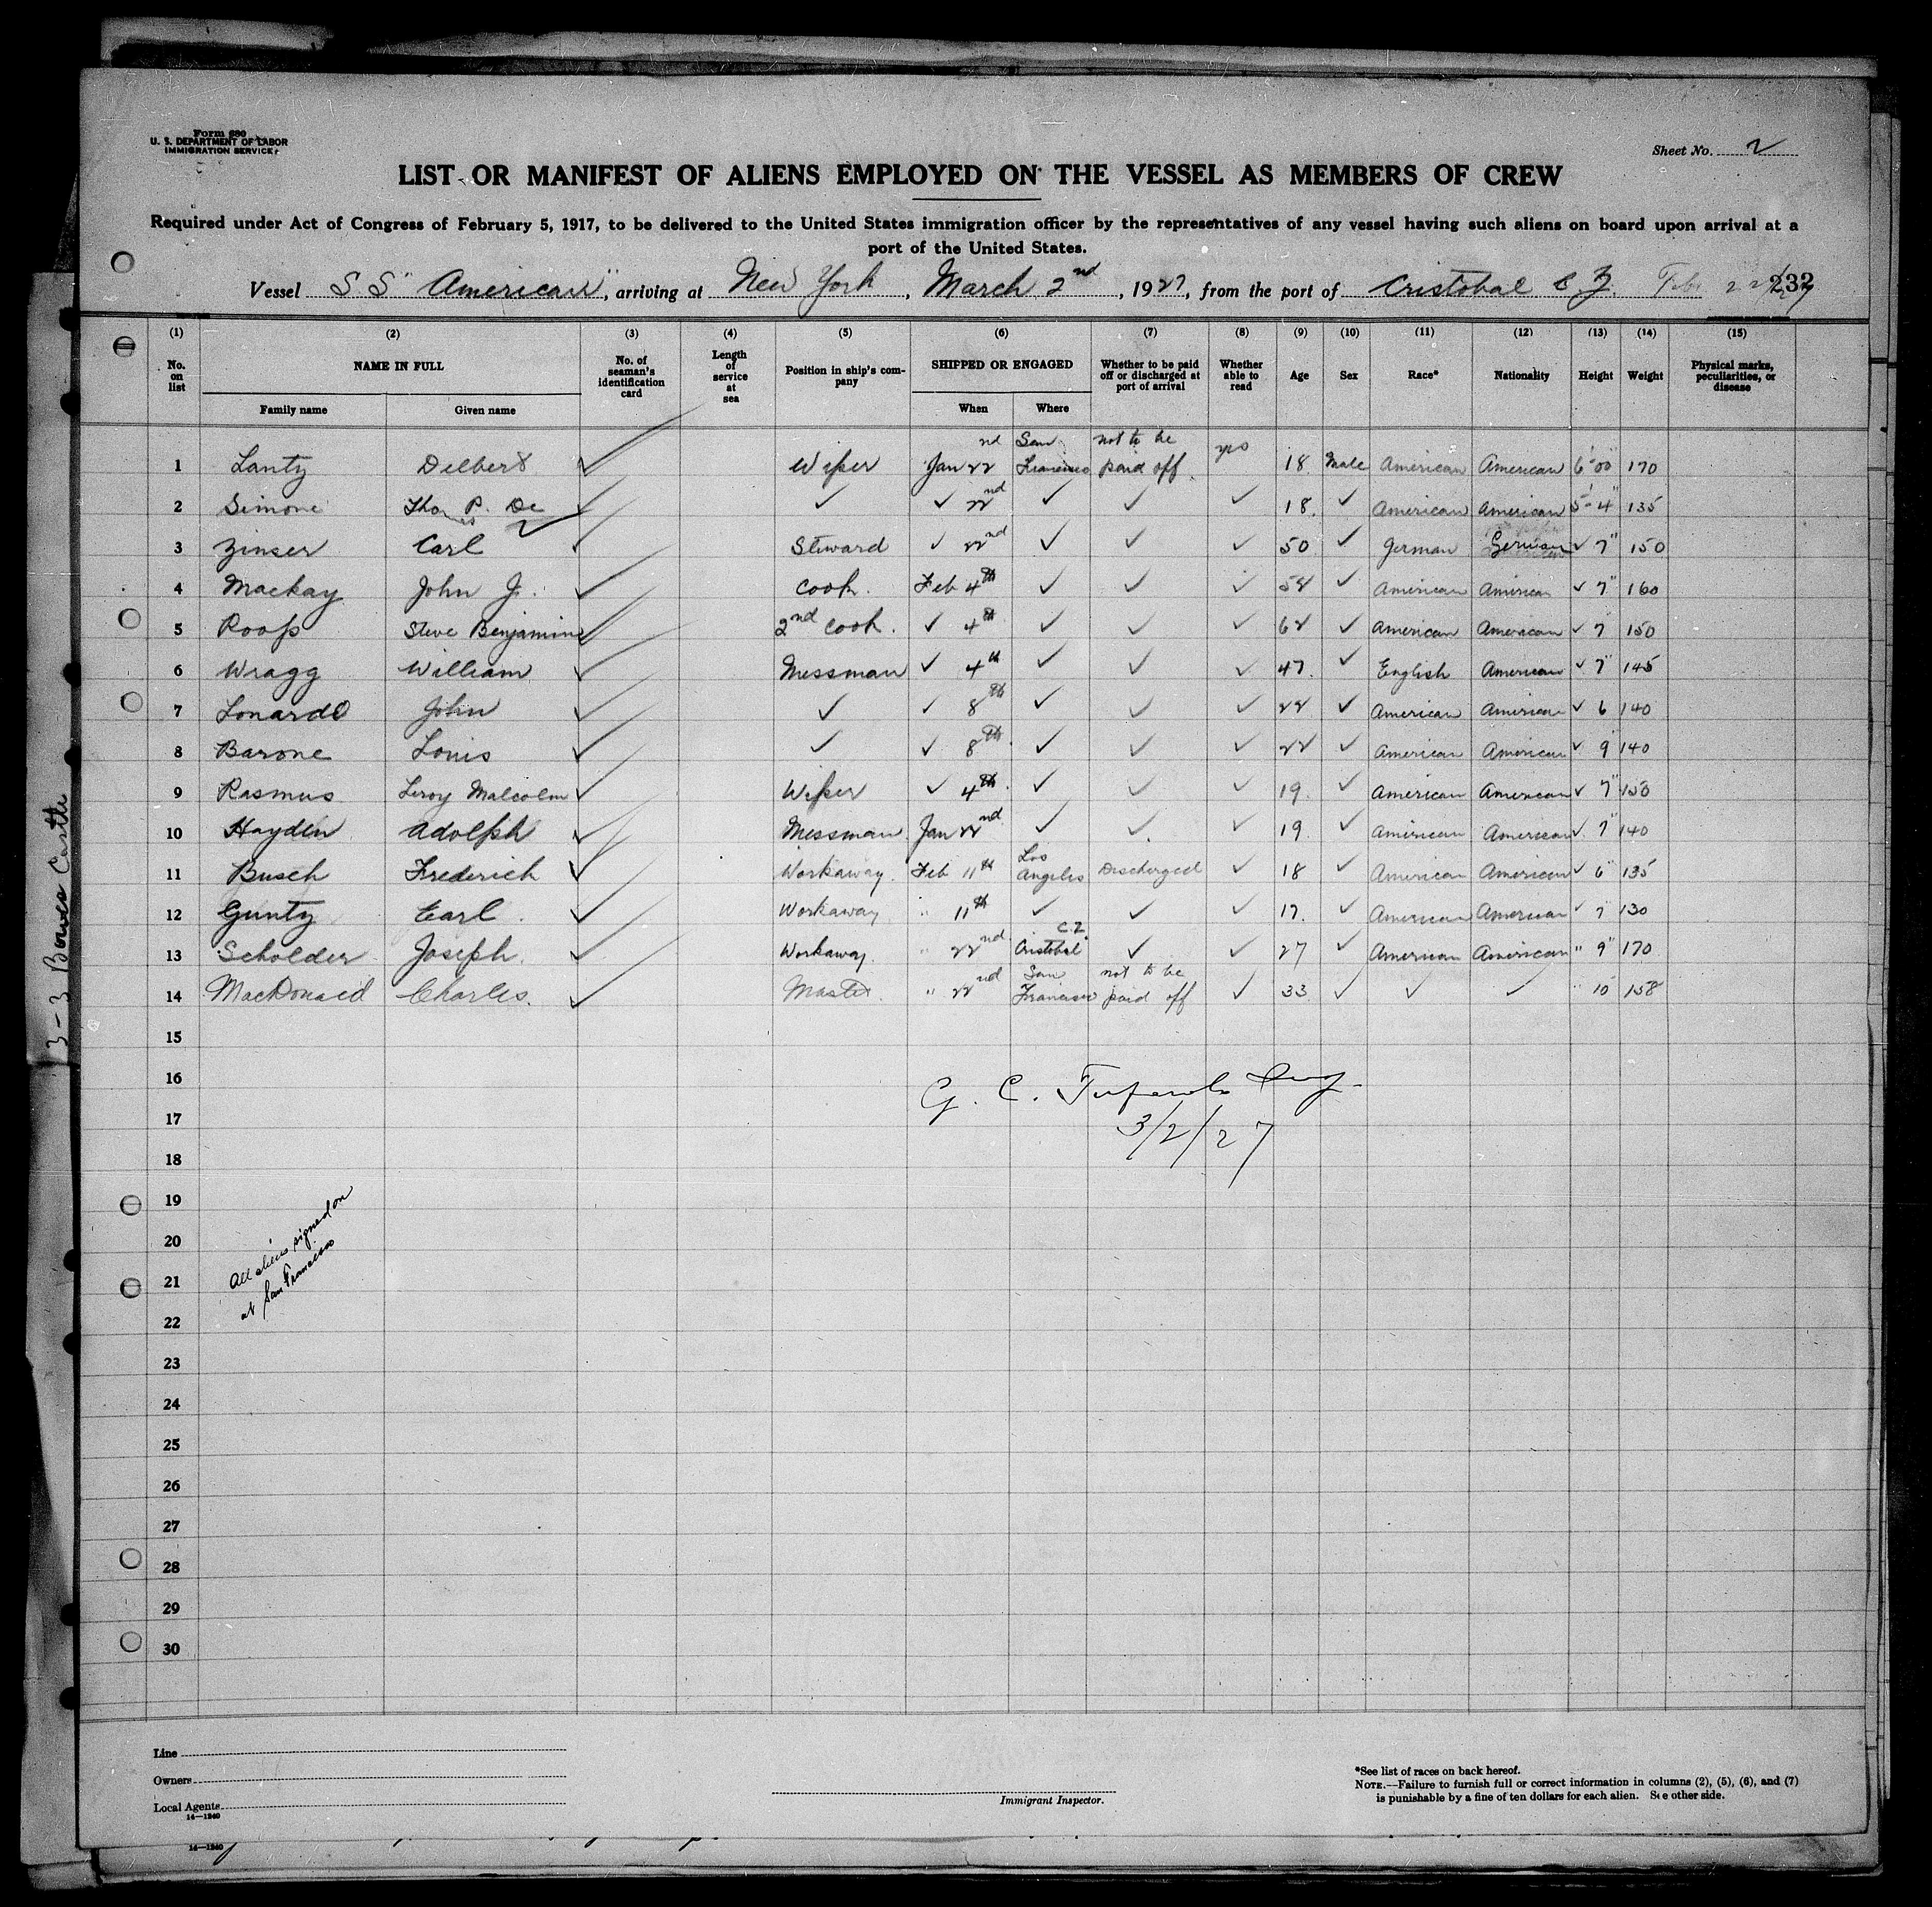 Form 680
U. S. DEPARTMENT OF LABOR
IMMIGRATION SERVICE
Sheet No. 2
LIST OR MANIFEST OF ALIENS EMPLOYED ON THE VESSEL AS MEMBERS OF CREW
Required under Act of Congress of February 5, 1917, to be delivered to the United States immigration officer by the representatives of any vessel having such aliens on board upon arrival at a
port of the United States.
Vessel SS "American", arriving at New York, March 2nd, 1927, from the port of Cristobal C.Z. Feb 22/27
232
(1) (2) (3) (4) (5) (6) (7) (8) (9) (10) (11) (12) (13) (14) (15)
No. on list NAME IN FULL No. of seaman's identification card Length of service at sea Position in ship's company SHIPPED OR ENGAGED Whether to be paid off or discharged at port of arrival Whether able to read Age Sex Race* Nationality Height Weight Physical marks, peculiarities, or disease
Family name Given name When Where
1 Lantz Delbert ✓ Wiper Jan 22nd San Francisco not to be paid off yes 18 Male American American 6'00" 170
2 Simone Thomas P. De ✓ ✓ ✓ 22nd ✓ ✓ ✓ 18 ✓ American American 5'-4" 135
3 Zinser Carl ✓ Steward ✓ 22nd ✓ ✓ ✓ 50 ✓ German German ✓ 7" 150
4 Mackay John J. ✓ Cook. Feb 4th ✓ ✓ ✓ ✓ American American ✓ 7" 160
5 Roofs Steve Benjamin ✓ 2nd Cook. ✓ 4th ✓ ✓ ✓ 62 ✓ American American ✓ 7 150
6 Wragg William ✓ Messman ✓ 4th ✓ ✓ ✓ 47 ✓ English American ✓ 7" 145
7 Lonardo John ✓ ✓ ✓ 8th ✓ ✓ ✓ 22 ✓ American American ✓ 6 140
8 Barone Louis ✓ ✓ ✓ 8th ✓ ✓ ✓ 22 ✓ American American ✓ 9 140
9 Rasmus Leroy Malcolm ✓ Wiper ✓ 4th ✓ ✓ ✓ 19 ✓ American American ✓ 7" 150
10 Hayden Adolph ✓ Messman Jan 22nd ✓ ✓ ✓ 19 ✓ American American ✓ 7" 140
11 Busch Frederich ✓ Workaway Feb 11th Los Angeles Discharged ✓ 18 ✓ American American ✓ 6" 135
12 Guntz Earl ✓ Workaway " 11th ✓ ✓ ✓ 17 ✓ American American ✓ 7 130
13 Scholder Joseph ✓ Workaway " 22nd Cristobal C.Z. ✓ ✓ 27 ✓ American American " 9" 170
14 MacDonald Charles ✓ Master " 22nd San Francisco not to be paid off ✓ 33 ✓ ✓ ✓ " 10 158
15
16
G. C.
17
3/2/27
18
19
20
21
All aliens signed on
at San Francisco
22
23
24
25
26
27
28
29
30
3-3 Bowes Castle
Line
Owners
Local Agents
14—1240
Immigrant Inspector.
*See list of races on back hereof.
NOTE.—Failure to furnish full or correct information in columns (2), (5), (6), and (7)
is punishable by a fine of ten dollars for each alien. See other side.
14—1240